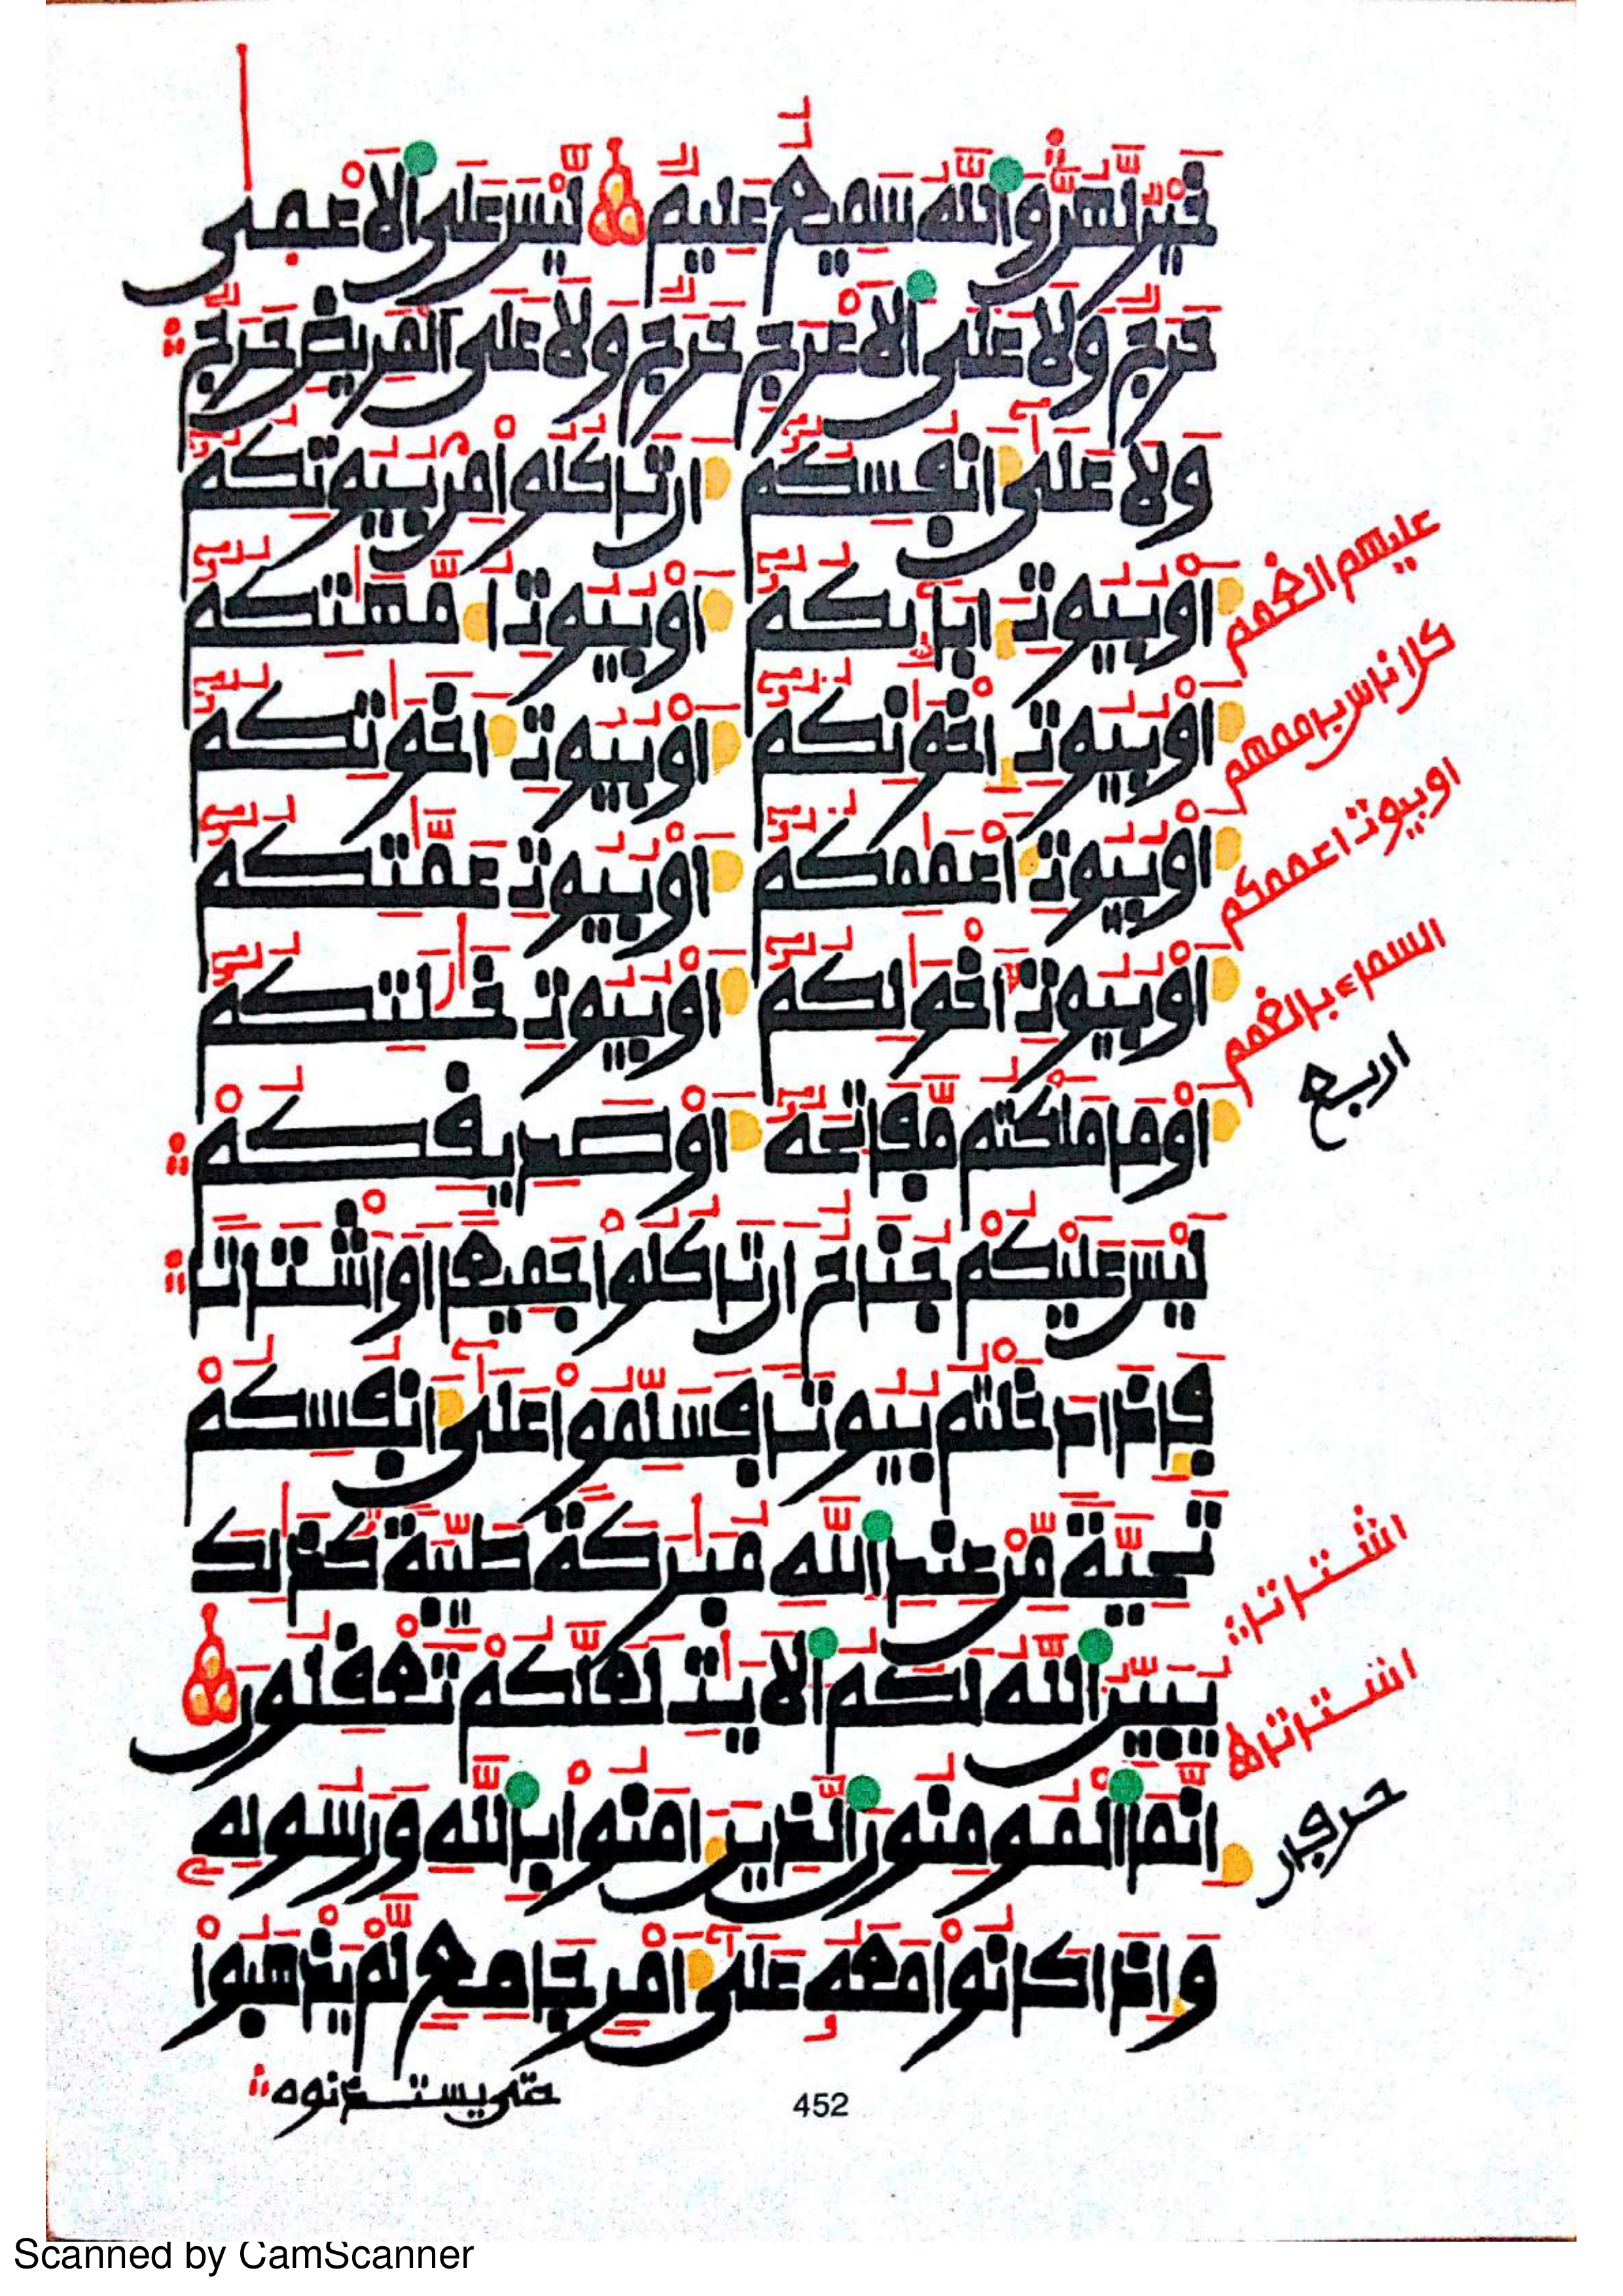 خَيْرٌ لَّهُنَّ وَاللَّهُ سَمِيعٌ عَلِيمٌ لَّيْسَ عَلَى الَاعْمٜى
حَرَجٌ وَلَا عَلَى الَاعْرَجِ حَرَجٌ وَلَا عَلَى الْمَرِيضِ حَرَجٌ
وَلَا عَلَىٰٓ أَنفُسِكُمُۥٓ أَن تَاكُلُوا مِنۢ بُيُوتِكُمُۥٓ
أَوْ بُيُوتِ ءَابَآئِكُمُۥٓ أَوْ بُيُوتِ أُمَّهَٰتِكُمُۥٓ
أَوْ بُيُوتِ إِخْوَٰنِكُمُۥٓ أَوْ بُيُوتِ أَخَوَٰتِكُمُۥٓ
أَوْ بُيُوتِ أَعْمَٰمِكُمُۥٓ أَوْ بُيُوتِ عَمَّٰتِكُمُۥٓ
أَوْ بُيُوتِ أَخْوَٰلِكُمُۥٓ أَوْ بُيُوتِ خَٰلَٰتِكُمُۥٓ
أَوْ مَا مَلَكْتُم مَّفَاتِحَهُۥٓ أَوْ صَدِيقِكُمْ
لَيْسَ عَلَيْكُمْ جُنَاحٌ أَن تَاكُلُوا جَمِيعًا أَوَ اشْتَاتًا
فَإِذَا دَخَلْتُم بُيُوتًا فَسَلِّمُوا عَلَىٰٓ أَنفُسِكُمْ
تَحِيَّةً مِّنْ عِندِ اللَّهِ مُبَٰرَكَةً طَيِّبَةً كَذَٰلِكَ
يُبَيِّنُ اللَّهُ لَكُمُ الَايَٰتِ لَعَلَّكُمْ تَعْقِلُونَ
إِنَّمَا الْمُومِنُونَ الَّذِينَ ءَامَنُوا بِاللَّهِ وَرَسُولِهِۦ
وَإِذَا كَانُوا مَعَهُۥ عَلَىٰٓ أَمْرٍ جَامِعٍ لَّمْ يَذْهَبُوا
حتى يستذنوه
452
اوبيوت اعممكم
اربع
اشتاتا
اشتاتا
Scanned by CamScanner